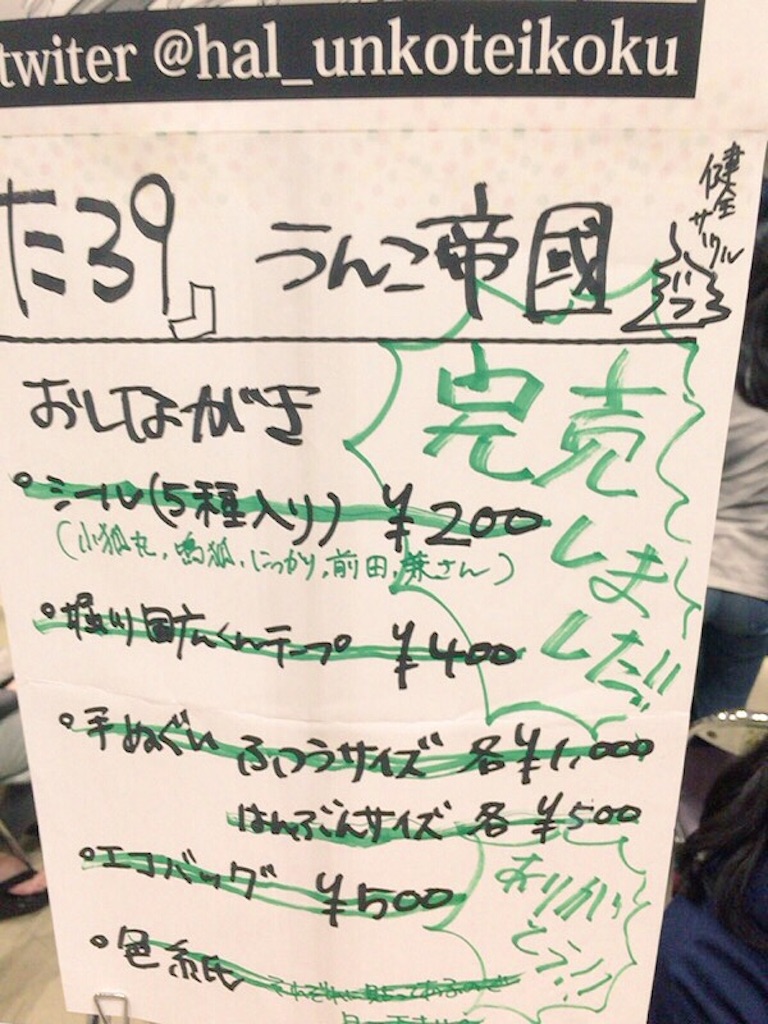 twiter @hal_unkoteikoku
健全
サークル
た39』 うんこ帝國
おしながき
完売
しま
しだ!!
・シール(5種入り) ¥200
(小狐丸, 鳴狐, にっかり, 前田, 兼さん)
・堀川国広くんテープ ¥400
・手ぬぐい ふつうサイズ 各¥1,000
はんぶんサイズ 各¥500
・エコバッグ ¥500
ありが
とう!!
・色紙 それぞれに貼ってあるので